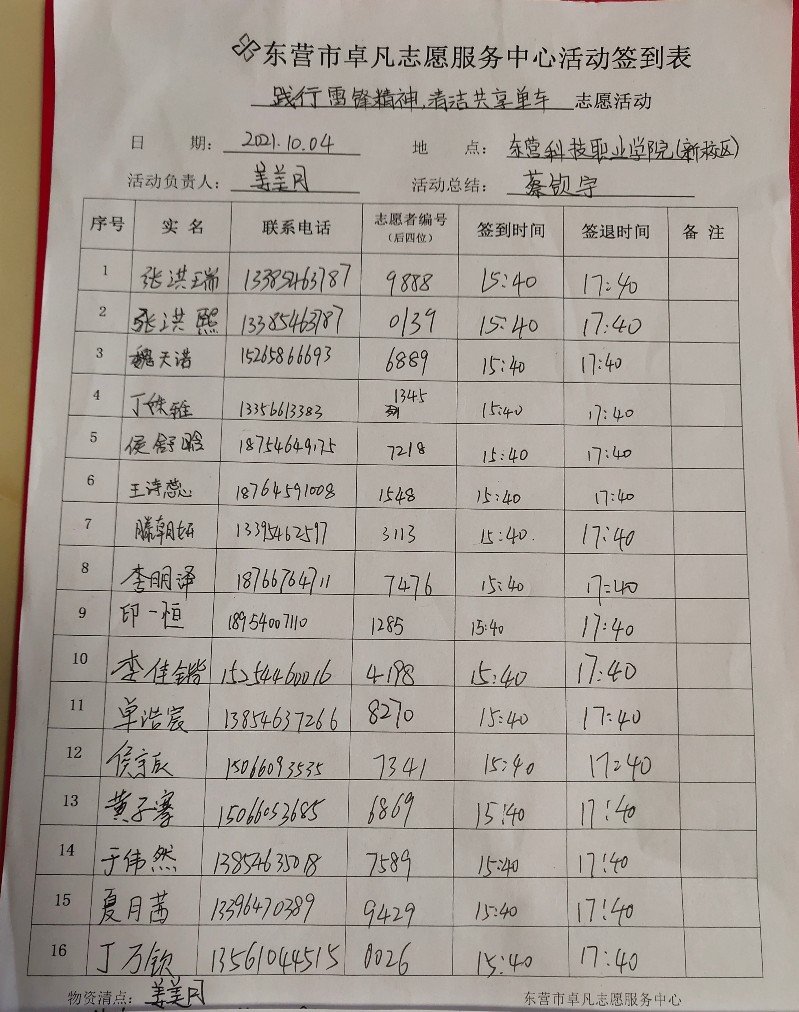 东营市卓凡志愿服务中心活动签到表
践行雷锋精神,清洁共享单车 志愿活动
日 期: 2021.10.04 地 点: 东营科技职业学院(新校区)
活动负责人: 姜美月 活动总结: 蔡锁宇
序号 实 名 联系电话 志愿者编号(后四位) 签到时间 签退时间 备 注
1 张洪瑞 13385463787 9888 15:40 17:40
2 张洪熙 13385463787 0139 15:40 17:40
3 魏天诺 15265866693 6889 15:40 17:40
4 丁姝雅 13356613383 1345 15:40 17:40
5 侯舒晗 18754649175 7218 15:40 17:40
6 王诗蕊 18764591008 1548 15:40 17:40
7 滕朝妍 13395462597 3113 15:40 17:40
8 李明泽 18766764711 7476 15:40 17:40
9 印一恒 18954007110 1285 15:40 17:40
10 李佳锴 15254460016 4198 15:40 17:40
11 单浩宸 13854637266 8270 15:40 17:40
12 侯宇辰 15066093535 7341 15:40 17:40
13 黄子骞 15066053685 6869 15:40 17:40
14 于伟然 13854635018 7589 15:40 17:40
15 夏月茜 13396470389 9429 15:40 17:40
16 丁万钦 13561044515 0026 15:40 17:40
物资清点: 姜美月 东营市卓凡志愿服务中心